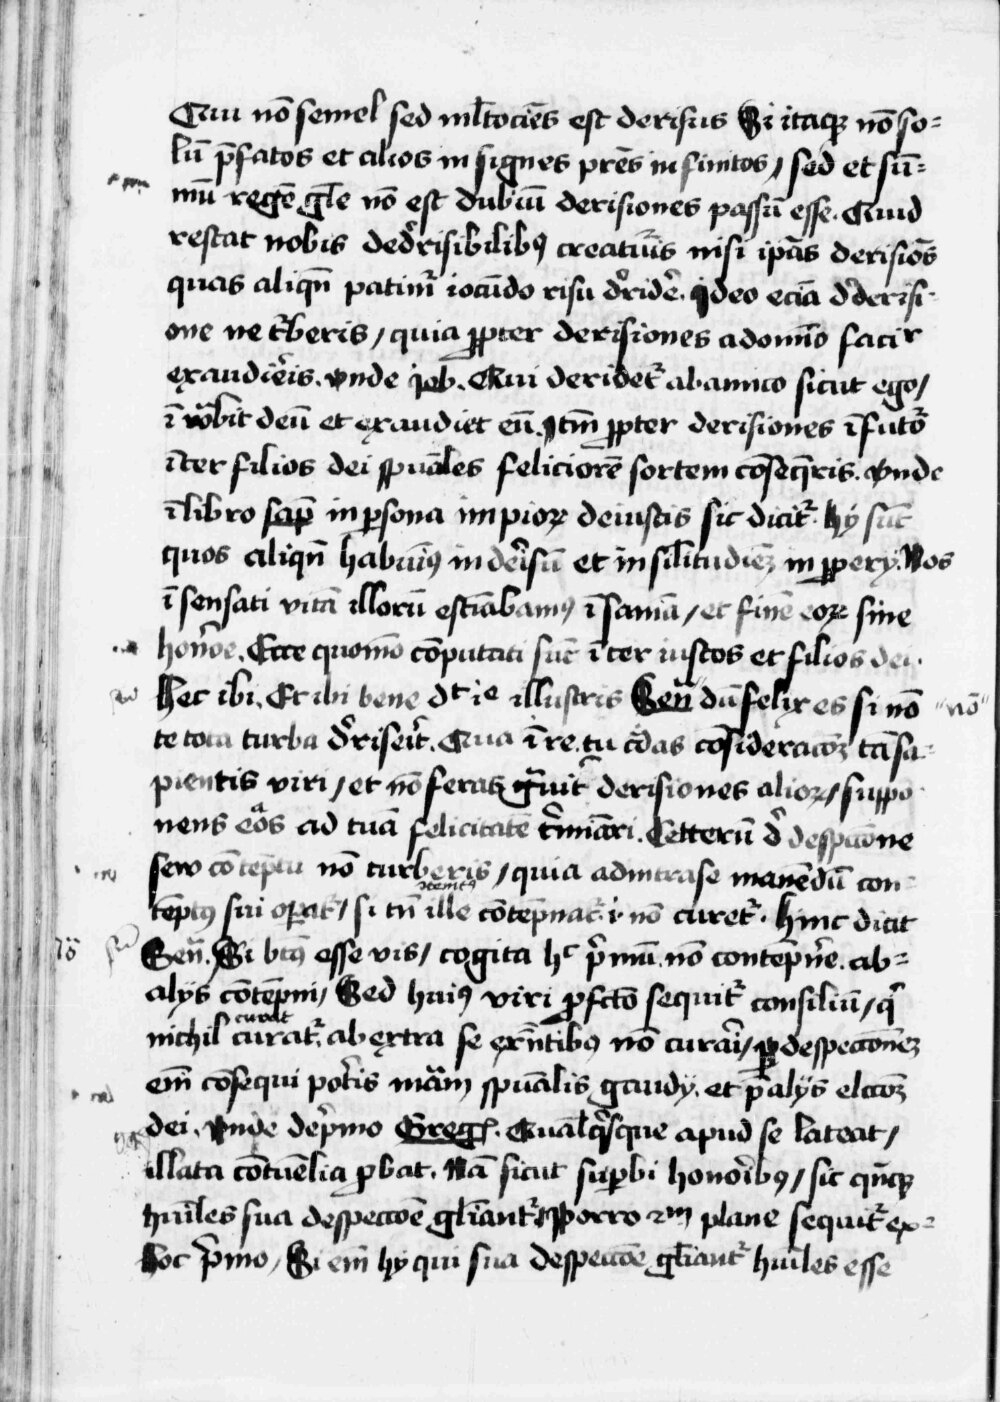 Qui nō semel sed ml̄tociēs est derisus Si itaqꝫ nō so=
lū p̄fatos et alios in signes pr̄es in finitos / sed et sū=
mū regē gl̄e nō est dubiū derisiones passū esse. Quid
restat nobis ded̓risibilibꝰ creatur̓is nisi ip̄as derisioēs
quas aliqn̄ patim̄r iocundo risu d̓rider̓e. Ideo eciā d̓ derisi-
one ne t̓beris / quia ꝓpter derisiones adomīo facir
exaudier̓is. Vnde iob. Qui deridet̓ abamico sicut ego /
īuo̓abit deū et exaudiet eū. Itm̄ ꝓpter derisiones ī futo̓
īter filios dei spūales feliciorē sortem cōseqr̓is. Vnde
ī libro sap̄ in ꝑsona impioꝝ deiustis sic dicit̓. hÿ sūt
quos aliqn̄ habuim̄ꝰ in der̓isū et in sil̄itudīeꝫ in ꝓperÿ. Nos
ī sensati vitā illorū estīabamꝰ ī saniā / et finē eoꝝ sine
hono̓re. Ecce quomō cōputati sūt ī ter iustos et filios dei.
Hec ibi. Et ibi bene dt ie illustris Sen̄ dū felix es si nō "nō"
te tota turba d̓riser̓it. Qua ī re. tu c̓das cōsideracōꝫ tā sa-
pientis viri / et nō feras gͣuit̓ derisiones alioꝝ / suppo-
nens eͣos ad tuā felicitatē t̓miāri. Cetterū d̓ despcc̄one
seu cōteptu nō turberis / quia adintrase manēdū con-
temptꝰ
tēptꝰ sui opat̓ / si tn̄ ille cōtēpnat̓ .i. nō curet̓. Hinc dicit
Sen̄. Si bt̄ꝰ esse vis / cogita hc p̓mū. nō contēpn̓e. ab=
alÿs cōtēpni / Sed huiꝰ viri ꝑfc̄to sequit̓ consiliū / q̓
curat
nichil curat̓. abextra se exn̄tibꝰ nō curar̓i / ꝑ despeccōneꝫ
em̄ cōsequi pot̓is mām spūalis gaudÿ. et p̄ alÿs elcc̄ōꝫ
dei. Vnde dep̓mo Greg. Qual̄q̓sque apud se lateat /
illata cōtuēlia ꝓbat. Nā sicut suꝑbi hono̓ibꝰ / sic qn̄qꝫ
huīles sua despeccōe gl̄iant̓ Porro 2m plane sequit̓ ex=
hoc p̓mo / Si em̄ hÿ qui sua despeccōe gl̄iant̓ huīles esse